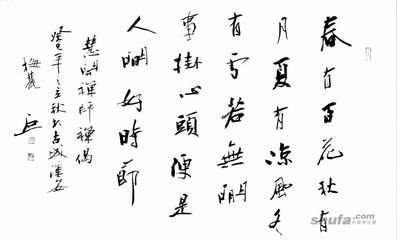 春有百花秋有
月夏有凉風冬
有雪若無閒
事掛心頭便是
人間好時節
慧開禪師禪偈
年之立秋於古城
shufa.com